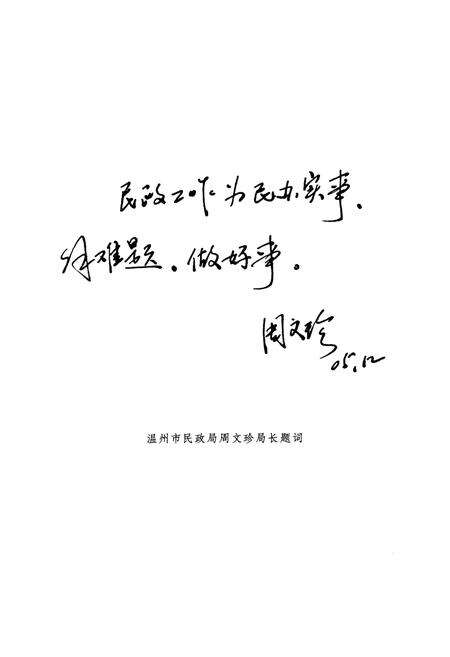 民政工作为民办实事、
解难题。做好事。
周文珍
05.12
温州市民政局周文珍局长题词